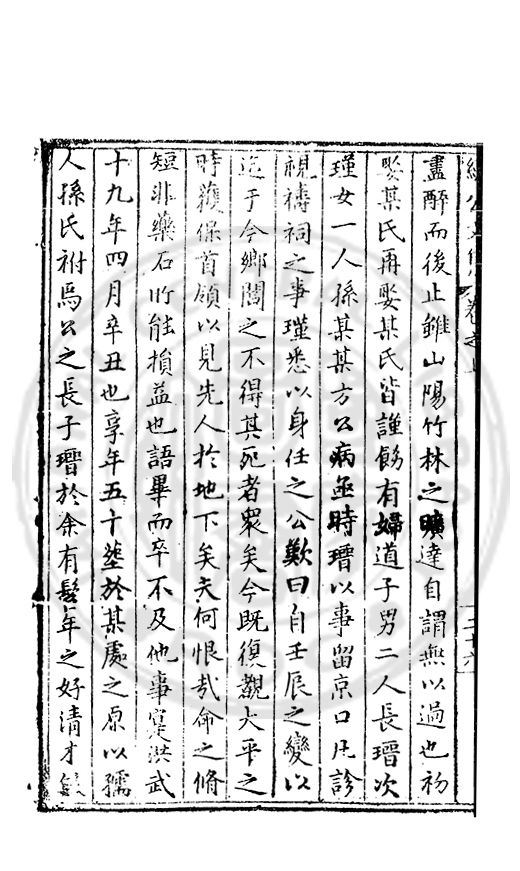 盡醉而後止雖山陽竹林之曠達自謂無以過也初
娶某氏再娶某氏皆謹飭有婦道子男二人長瑨次
瑾女一人孫某某方公病亟時瑨以事留京口凡診
視禱祠之事瑾悉以身任之公歎曰自壬辰之變以
迄于今鄉閭之不得其死者眾矣今既復觀大平之
時獲保首領以見先人於地下矣夫何恨哉命之脩
短非藥石所能損益也語畢而卒不及他事寔洪武
十九年四月辛丑也享年五十塟於某處之原以孺
人孫氏祔焉公之長子瑨於余有髫年之好清才